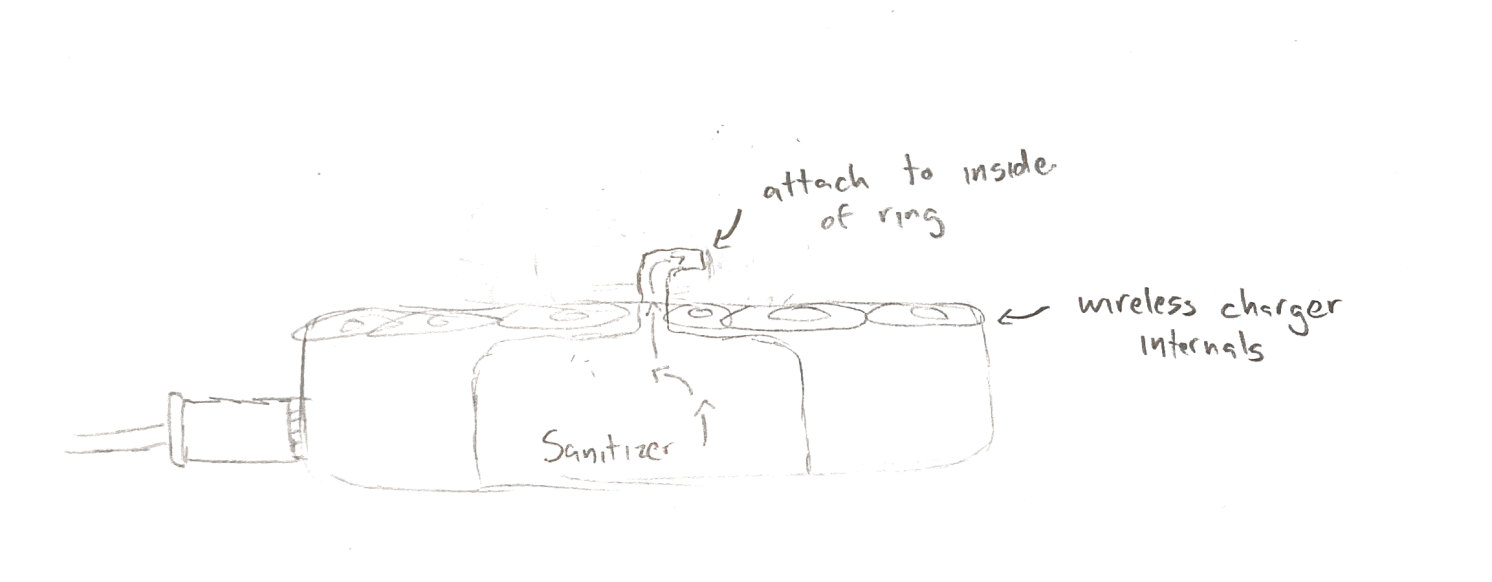 attach to inside
of ring
wireless charger
internals
Sanitizer